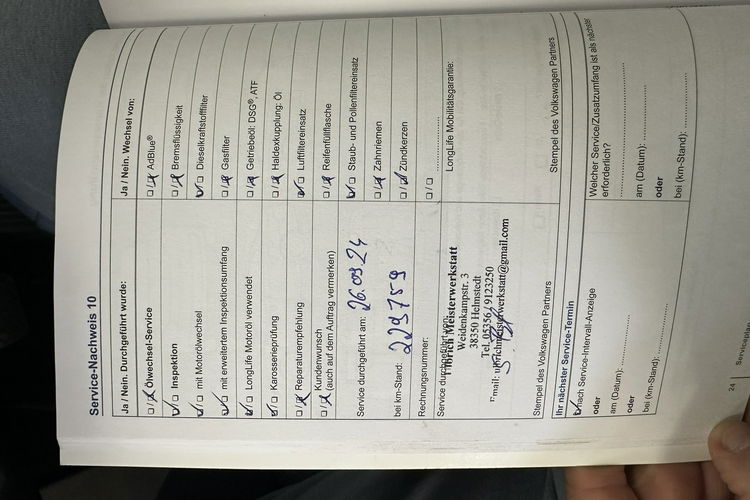 Service-Nachweis 10
Ja / Nein. Durchgeführt wurde:
Ölwechsel-Service
Inspektion
mit Motorölwechsel
mit erweitertem Inspektionsumfang
LongLife Motoröl verwendet
Karosserieprüfung
Reparaturempfehlung
Kundenwunsch
(auch auf dem Auftrag vermerken)
Service durchgeführt am: 26.09.24
bei km-Stand: 229759
Rechnungsnummer:
Service durchgeführt von:
Meisterwerkstatt
Weidenkampstr. 3
38350 Helmstedt
Tel. 05356 / 9123250
Stempel des Volkswagen Partners
Ja / Nein. Wechsel von:
AdBlue®
Bremsflüssigkeit
Dieselkraftstofffilter
Gasfilter
Getriebeöl: DSG®, ATF
Haldexkupplung: Öl
Luftfiltereinsatz
Reifenfüllflasche
Staub- und Pollenfiltereinsatz
Zahnriemen
Zündkerzen
LongLife Mobilitätsgarantie:
Stempel des Volkswagen Partners
Ihr nächster Service-Termin
nach Service-Intervall-Anzeige
oder
am (Datum):
oder
bei (km-Stand):
Welcher Service/Zusatzumfang ist als nächster
erforderlich?
am (Datum):
oder
bei (km-Stand):
24
Serviceplan